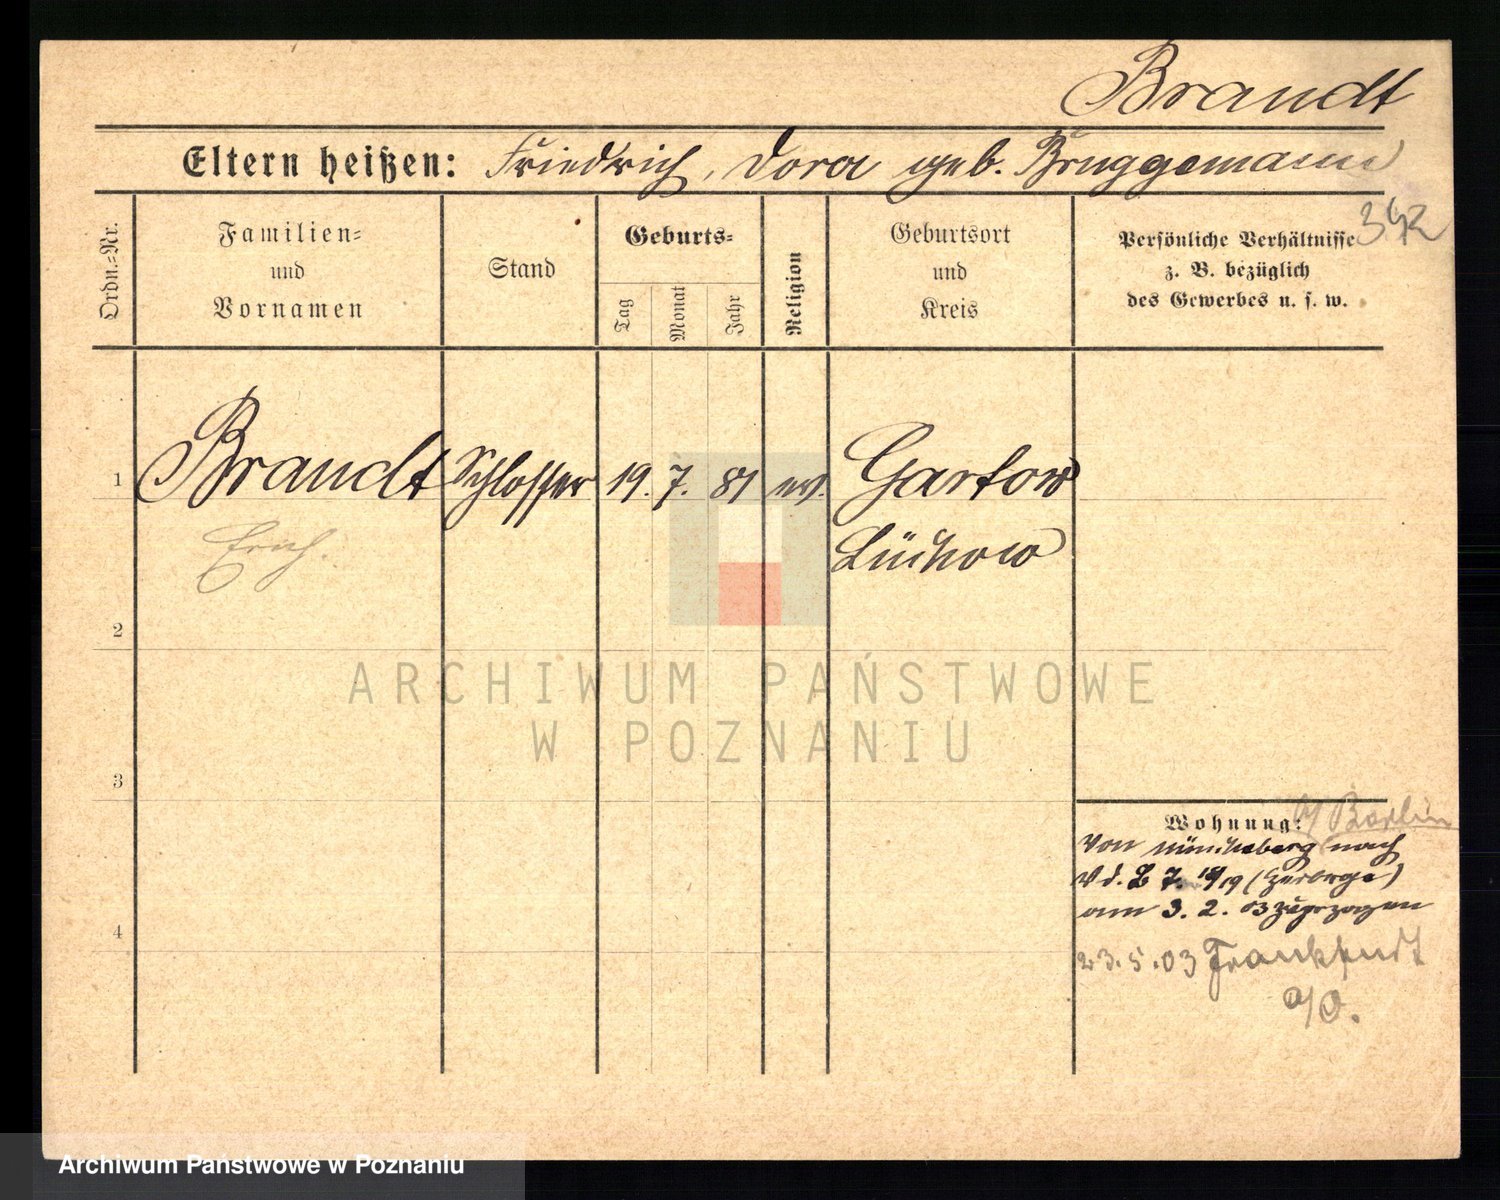 Brandt
Eltern heißen: Friedrich, Dora geb. Bruggemann
342
Ordn.=Nr.
Familien=
und
Vornamen
Stand
Geburts=
Tag
Monat
Jahr
Religion
Geburtsort
und
Kreis
Persönliche Verhältnisse
z. B. bezüglich
des Gewerbes u. s. w.
1 Brandt Schlosser 19. 7. 81 ev. Gartow
Erich. Lüchow
2
ARCHIWUM PAŃSTWOWE
W POZNANIU
3
Wohnung: Berlin
von Müncheberg nach
18/19
am 3. 2. 03 zugezogen
4
23.5.03 Frankfurt
a/O.
Archiwum Państwowe w Poznaniu